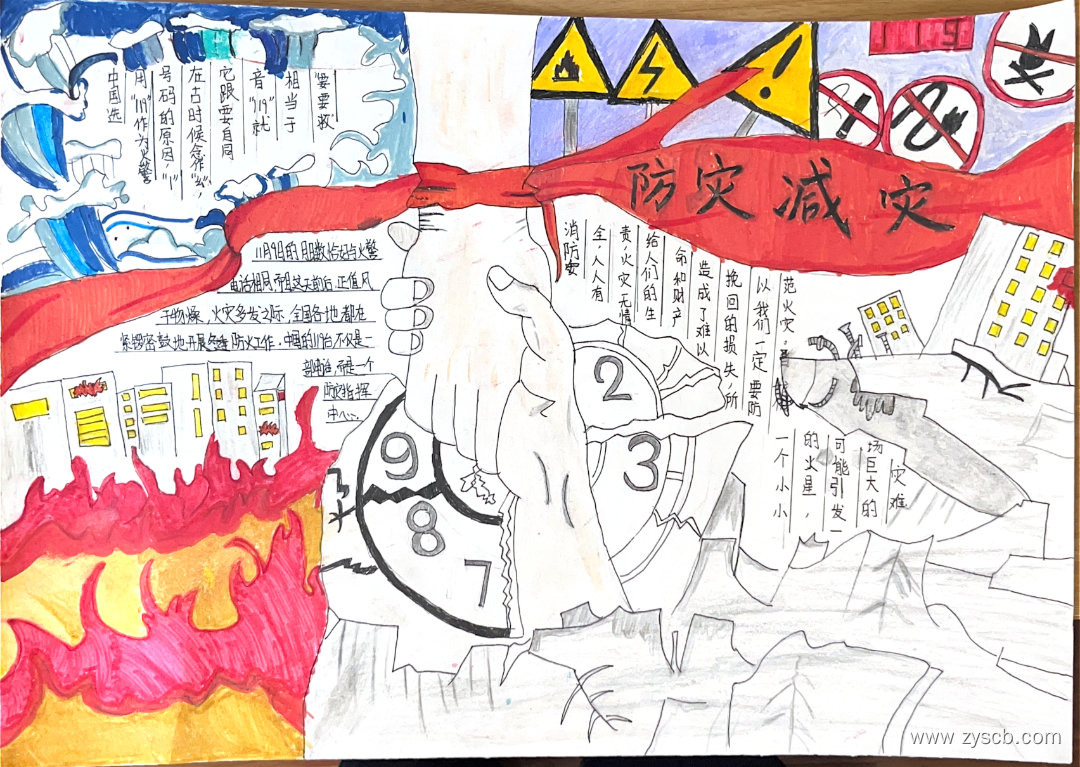 中国选
用"119"作为火警
号码的原因,"1"
在古时候念作"幺",
它跟要自同
音"119"就
相当于
"要要救
119
防灾减灾
11月9日的月日数恰好与火警
电话相同而且这天前后正值风
干物燥,火灾多发之际,全国各地都在
紧锣密鼓地开展冬季防火工作.中国的119台不仅是一
部电话,而是一个
防火指挥
中心...
消防安
全人人有
责,火灾无情
给人们的生
命和财产
造成了难以
挽回的损失,所
以我们一定要防
范火灾,
一个小小
的火星,
可能引发一
场巨大的
灾难
2
3
9
8
7
www.zyscb.com